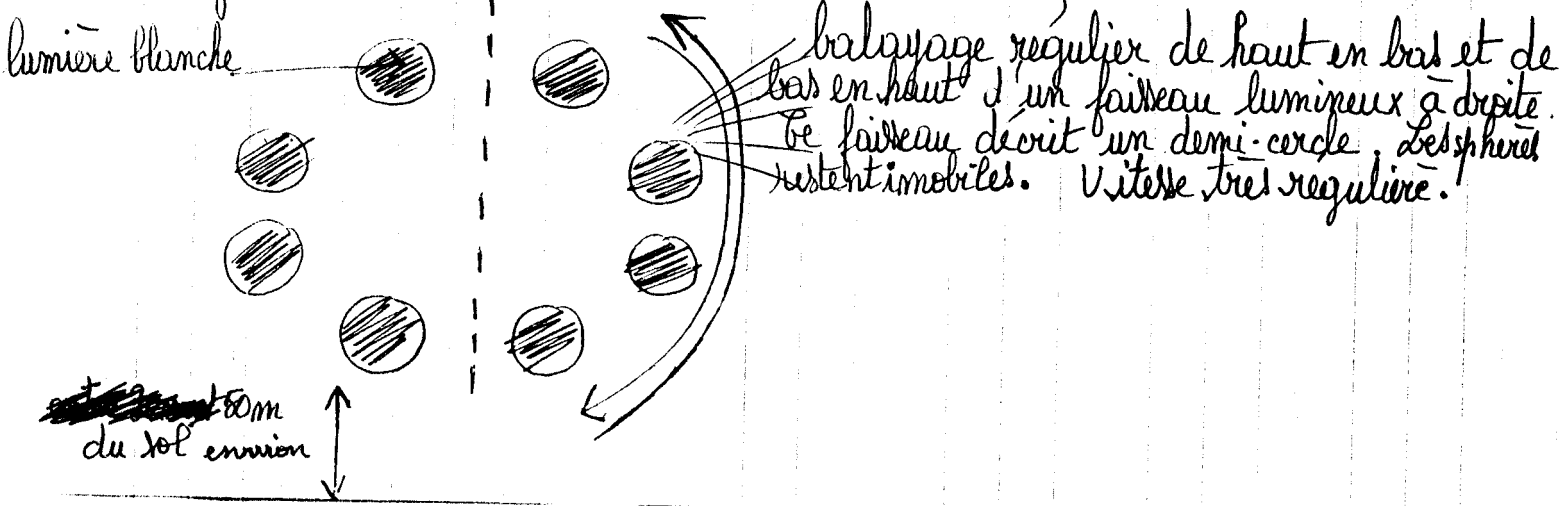 lumière blanche
balayage régulier de haut en bas et de
bas en haut d'un faisseau lumineux à droite.
Ce faisseau décrit un demi-cercle. Les sphères
restent imobiles. Vitesse très régulière.
50m
du sol environ